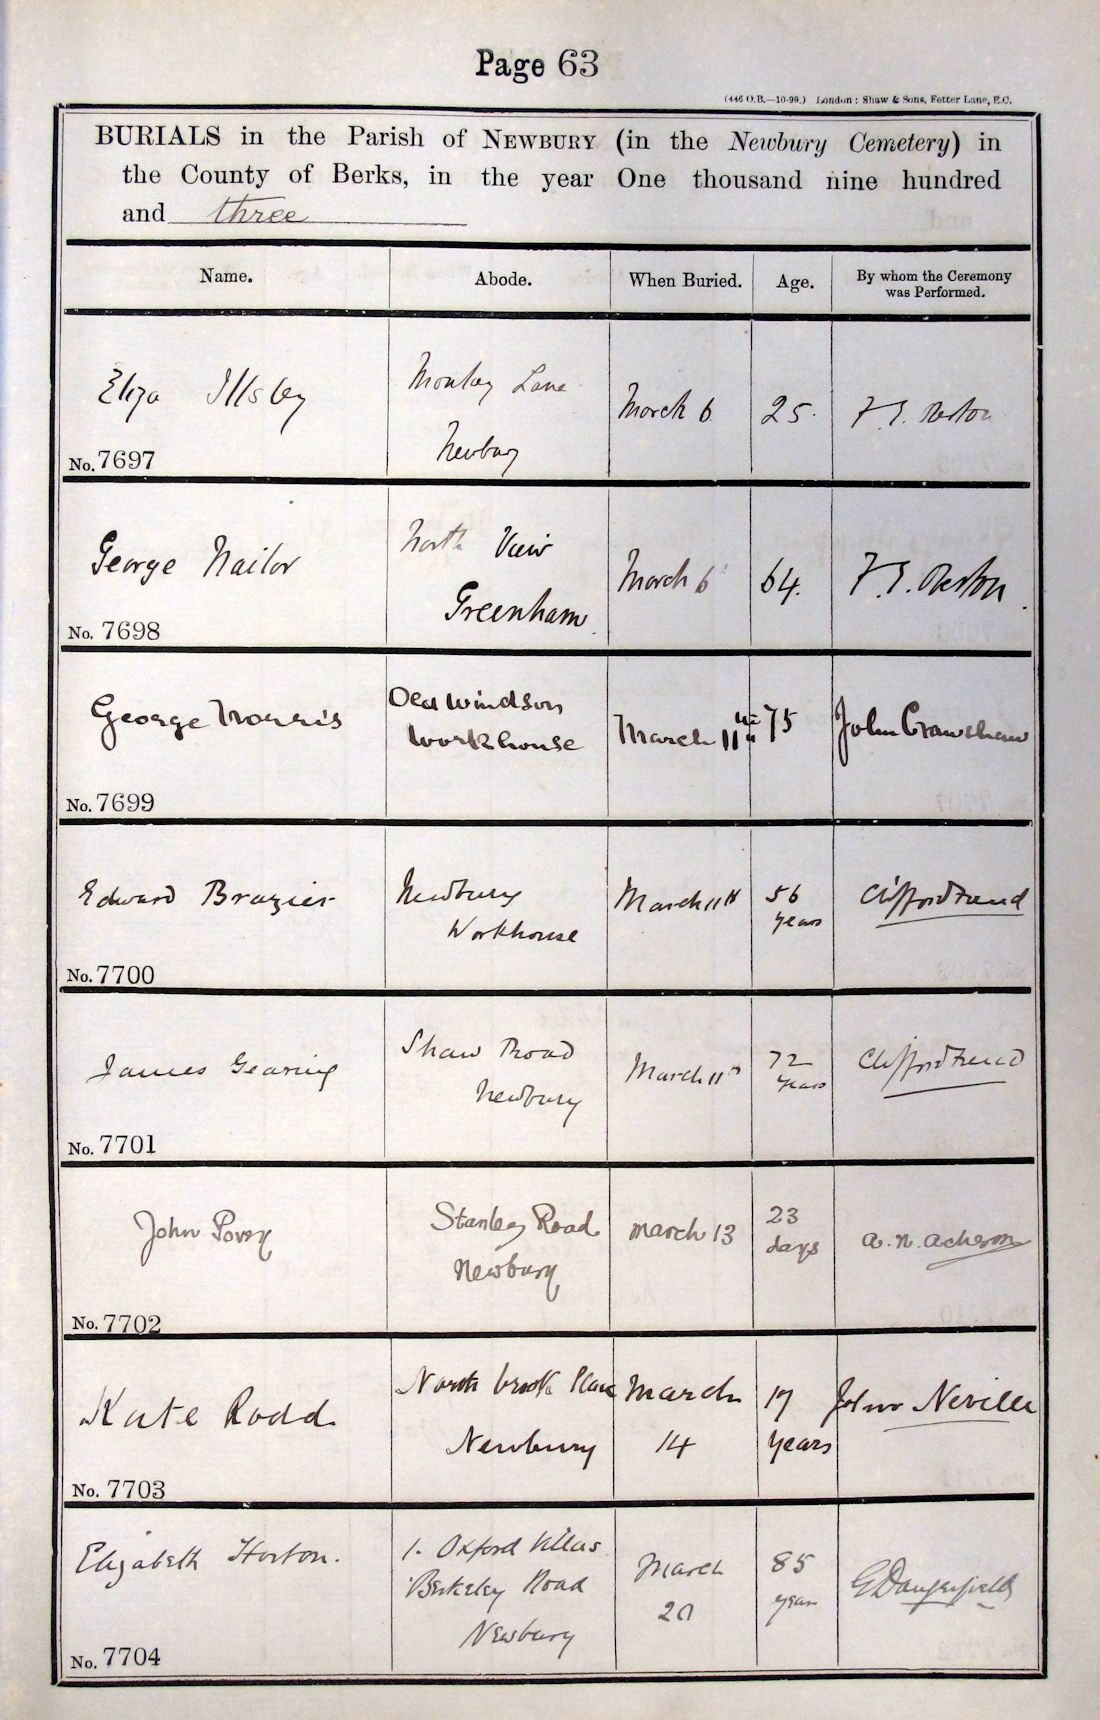 Page 63
(446 O.B.—10-99.) London: Shaw & Sons, Fetter Lane, E.C.
BURIALS in the Parish of NEWBURY (in the Newbury Cemetery) in
the County of Berks, in the year One thousand nine hundred
and three
Name. Abode. When Buried. Age. By whom the Ceremony
was Performed.
Eliza Illsley Lane March 6 25.
Newbury
No. 7697
George Nailor North View March 6 64.
Greenham
No. 7698
George Norris Old Windsor March 11th 75 John Crawshaw
Workhouse
No. 7699
Edward Brazier Newbury March 11th 56 Clifford
Workhouse years
No. 7700
James Gearing Shaw Road March 11th 72 Clifford
Newbury years
No. 7701
John Povey Stanley Road March 13 23 A. N. Acheson
Newbury days
No. 7702
Kate Rodd Northbrook Place March 17 John Neville
Newbury 14 years
No. 7703
Elizabeth Horton. 1. Oxford Villas March 85 G Dangerfield
Berkeley Road 20 years
Newbury
No. 7704